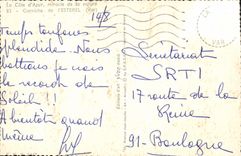 La Côte d'Azur, miracle de la nature
Corniche de l'ESTEREL (Var)
14/8
Temps toujours
splendide. Nous
battons je crois
le record de
Soleil !!
A bientôt quand
même
Secrétariat
SRTI
17 route de la
Reine
91 - Boulogne
VAR